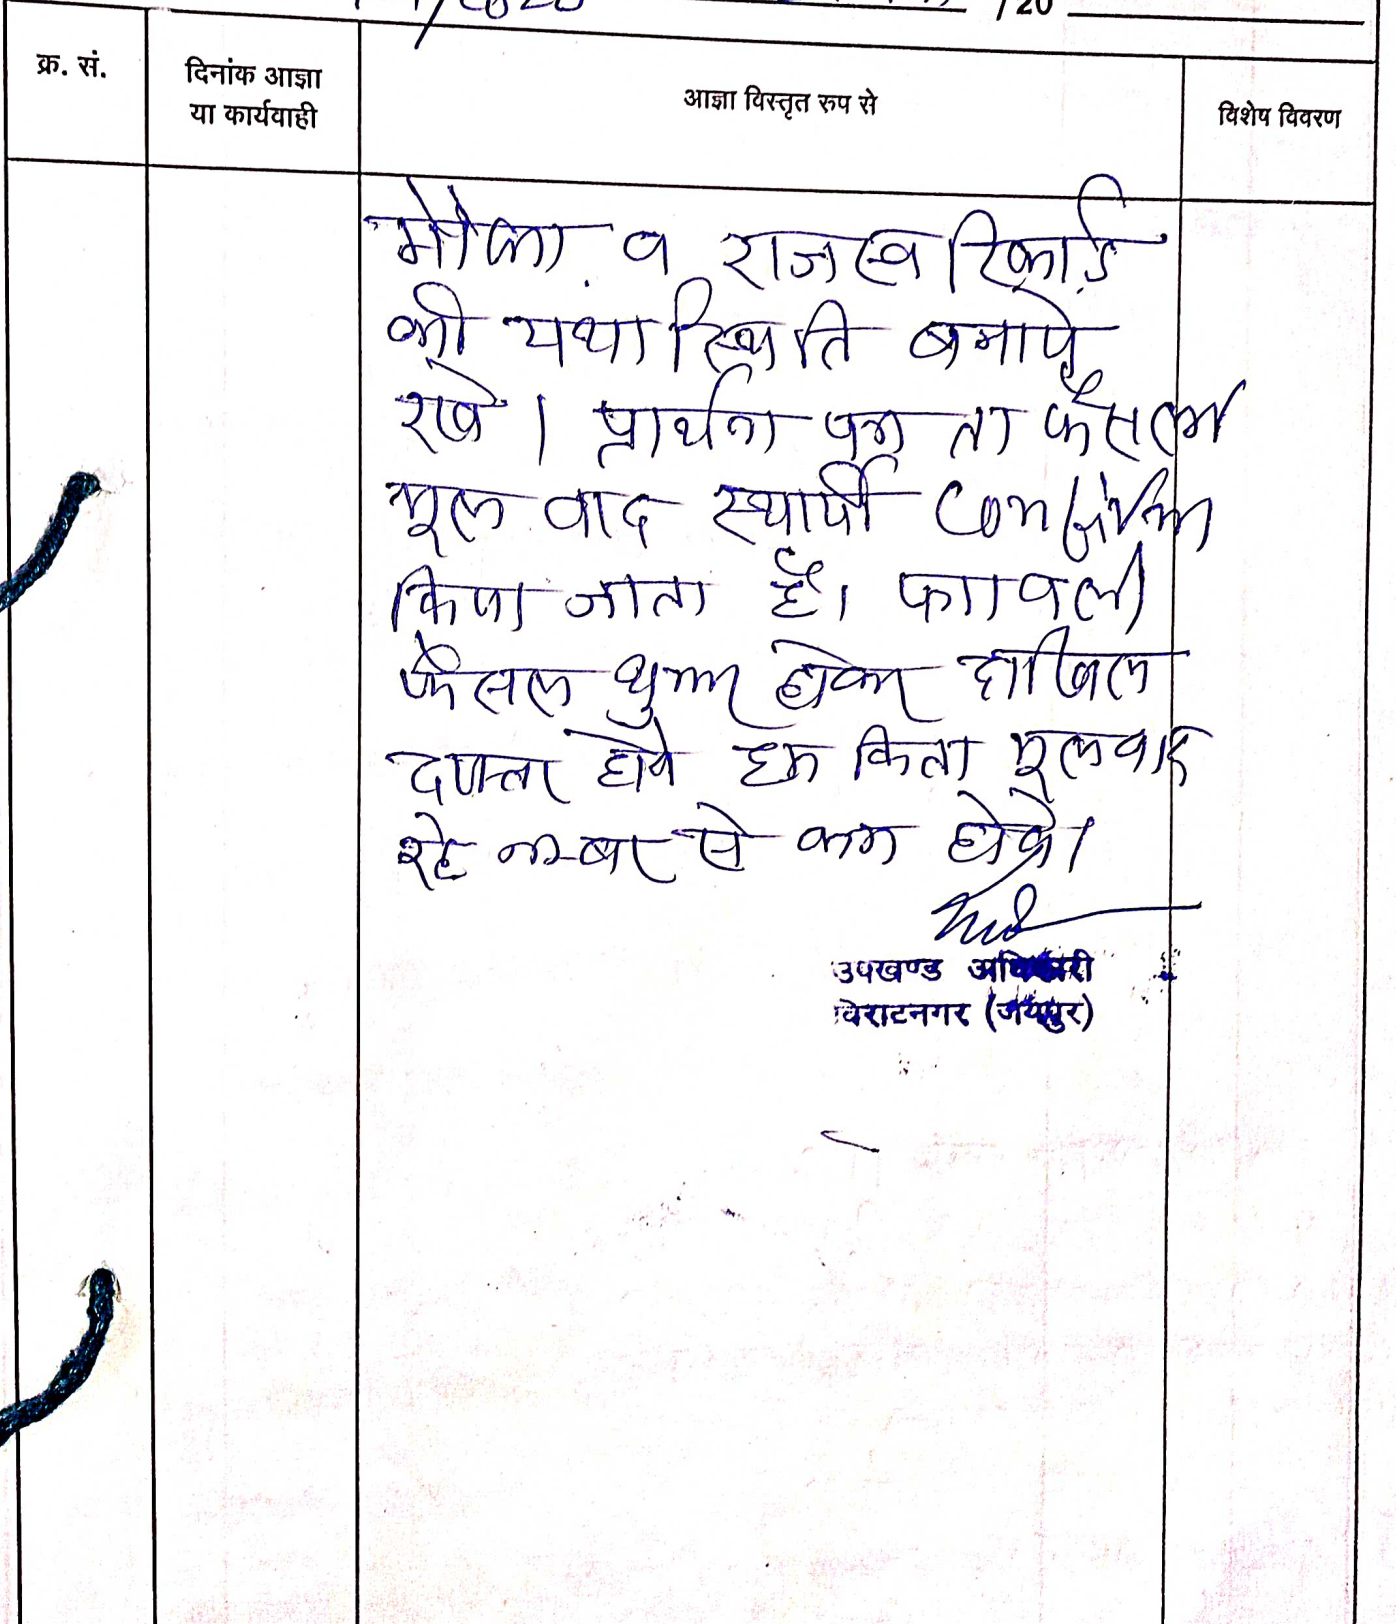 /2020 /20
क्र. सं.
दिनांक आज्ञा
या कार्यवाही
आज्ञा विस्तृत रुप से
विशेष विवरण
मौका व राजस्व रिकार्ड
की यथास्थिति बनाये
रखे । प्रार्थना पत्र ता फैसला
मूल वाद स्थायी Confirm
किया जाता है। पत्रावली
फैसल शुमार होकर दाखिल
दफ्तर होवे हम किता मूलवाद
रहे नम्बर से कम होवे।
उपखण्ड अधिकारी
विराटनगर (जयपुर)